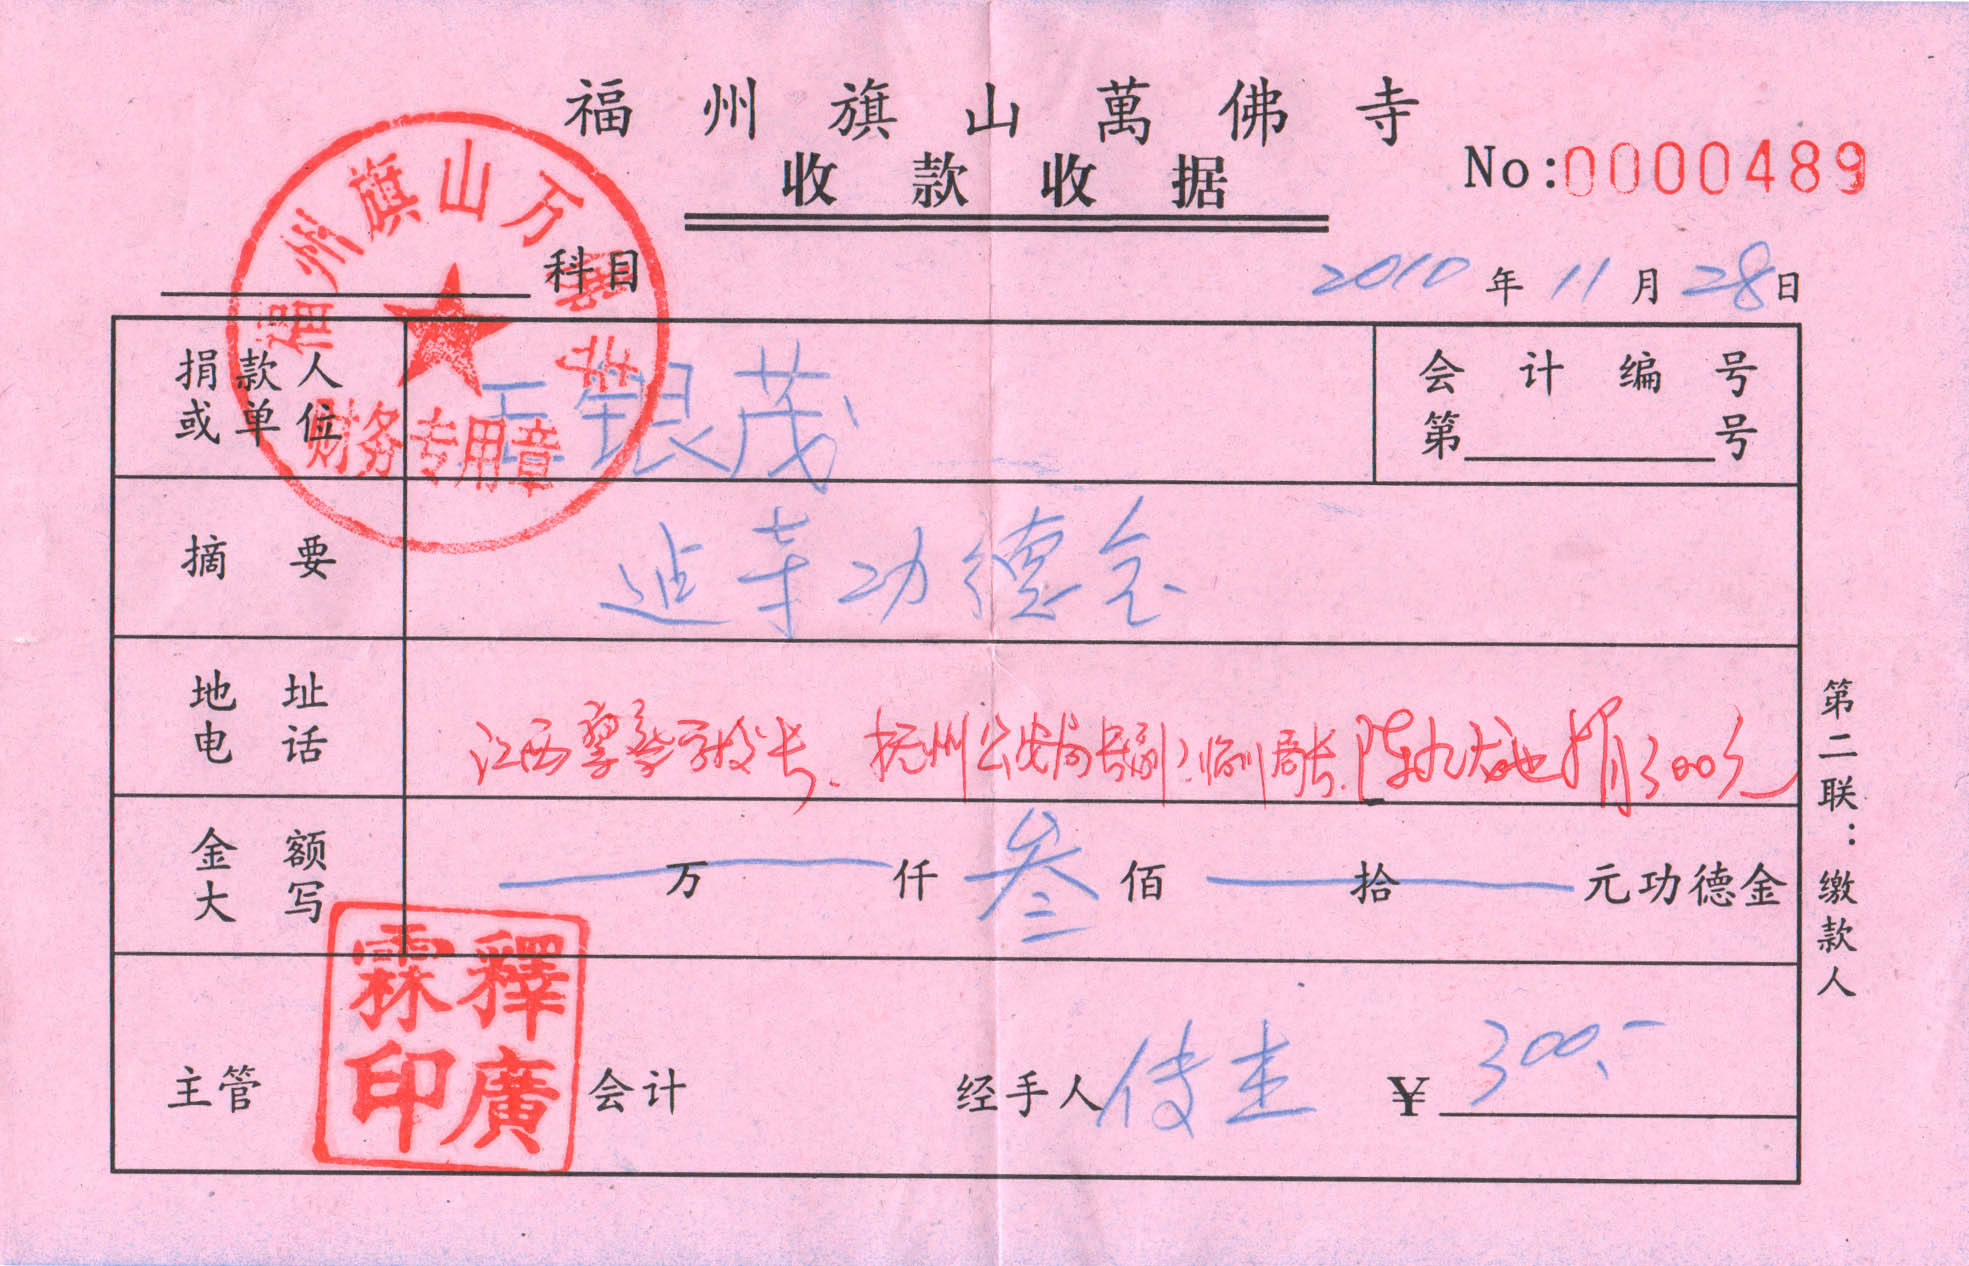 福州旗山萬佛寺
收款收据
No:0000489
科目
2010年11月28日
福州旗山万佛寺
财务专用章
捐款人
或单位
王银茂
会计编号
第 号
摘要
功德会
地址
电话
江西警 校长、抚州公安局长 、临川局长、陈 捐300元
金额
大写
万 仟 叁 佰 拾 元功德金
第二联：缴款人
主管
釋廣霖印
会计
经手人
传
¥ 300.-